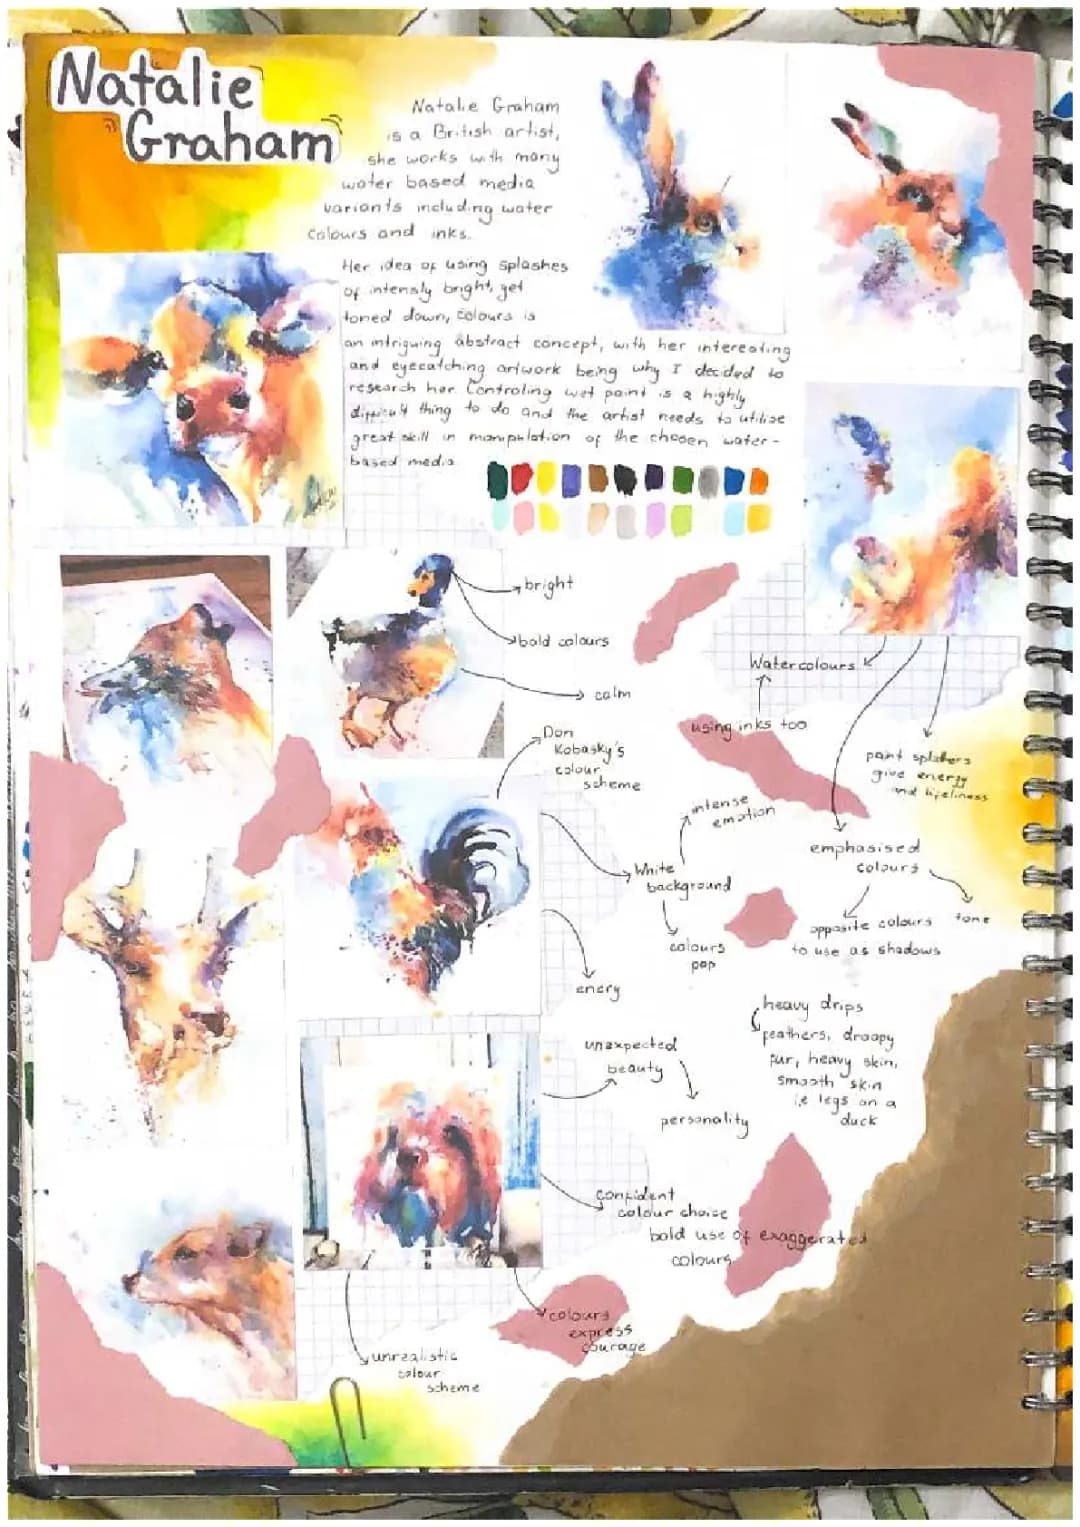 Natalie
Graham
Natalie Graham
is a British artist,
she works with many
water based media
variants including water
colours and inks.
Her idea of using splashes
of intensly bright, yet
toned down, colours is
an intriguing abstract concept, with her interesting
and eyecatching artwork being why I decided to
research her. Controling wet paint is a highly
difficult thing to do and the artist needs to utilise
great skill in manipulation of the chosen water-
based media.
bright
bold colours
calm
Watercolours
using inks too
paint splatters
give energy
and lifeliness
Don
Kobasky's
colour
scheme
intense
emotion
White
background
colours
pop
enery
emphasised
colours
opposite colours
to use as shadows
tone
heavy drips
feathers, droopy
fur, heavy skin,
smooth skin
i.e legs on a
duck
unexpected
beauty
personality
confident
colour choice
bold use of exaggerated
colours
colours
express
courage
unrealistic
colour
scheme